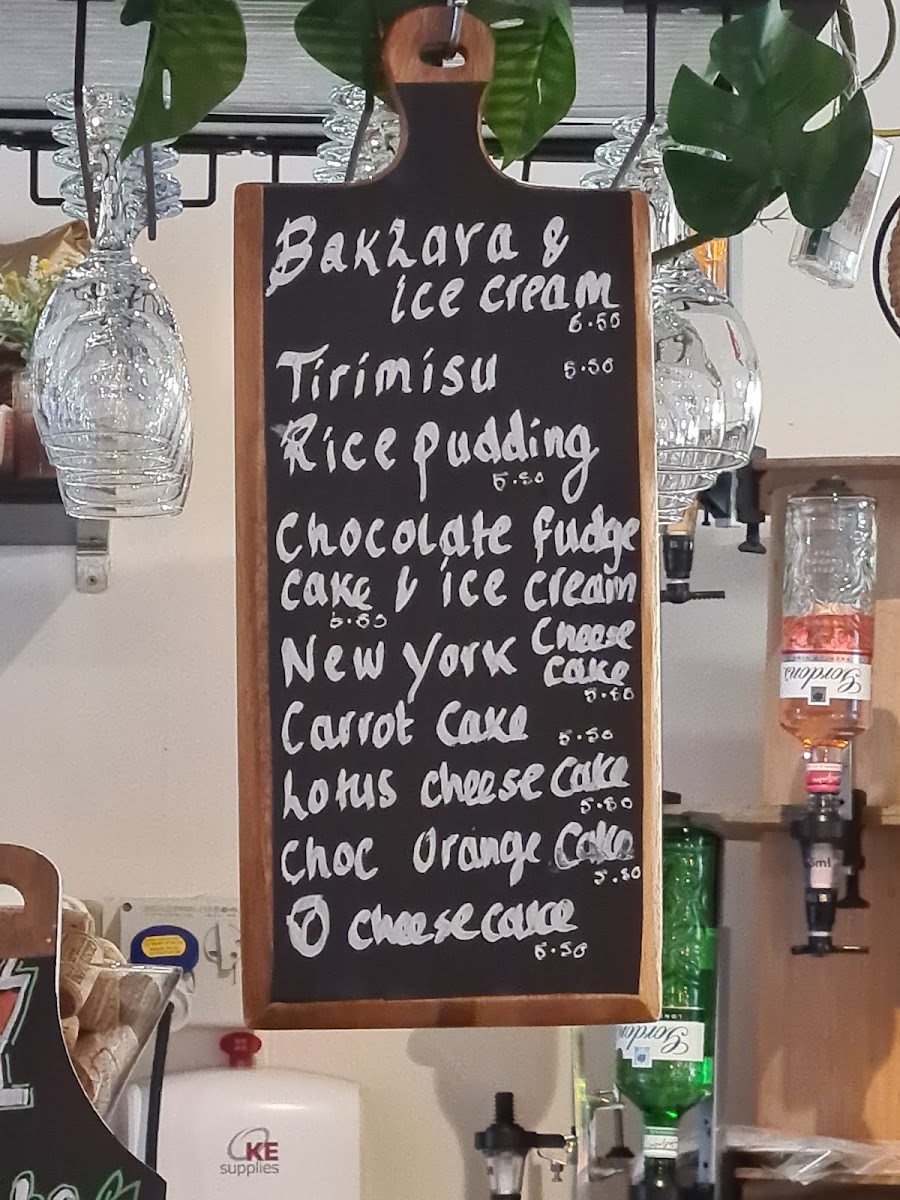 Baklava &
ice cream
6.50
Tirimisu 5.50
Rice pudding
5.50
Chocolate fudge
cake & ice cream
5.50
New York Cheese
cake
5.50
Carrot Cake 5.50
Lotus cheese cake
5.50
Choc Orange Cake
5.50
O cheesecake
5.50
Gordon's
5ml
Gordon's
KE
supplies